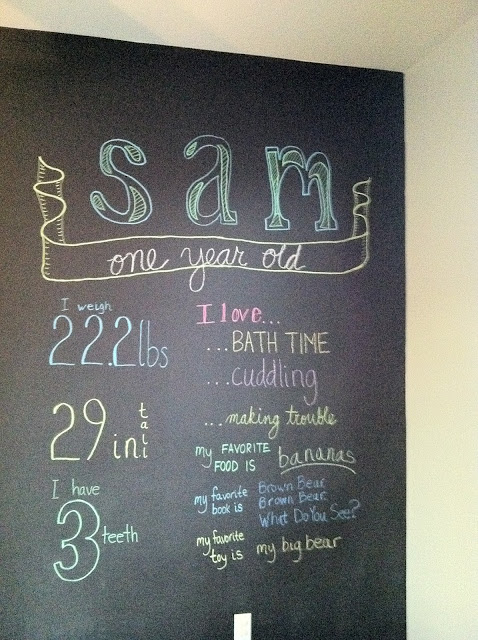 sam
one year old
I weigh
22.2lbs
29 in tall
I have
3 teeth
I love...
...BATH TIME
...cuddling
...making trouble
my FAVORITE
FOOD IS bananas
my favorite
book is
Brown Bear
Brown Bear
What Do You See?
my favorite
toy is my big bear